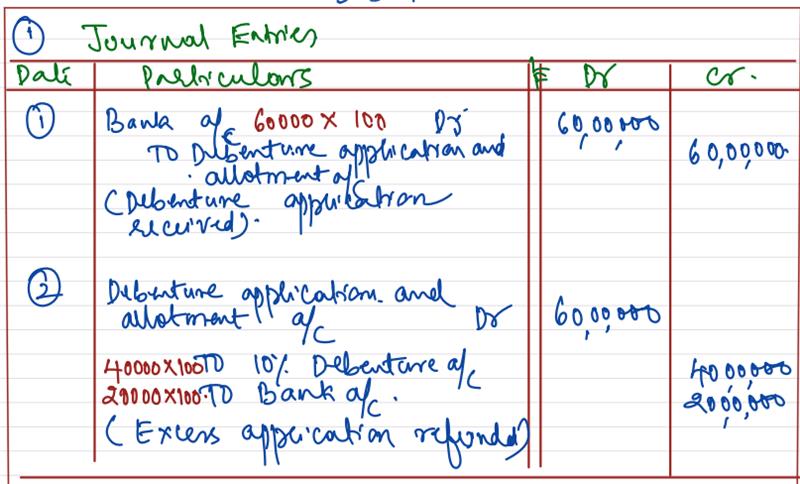 ① Journal Entries
Date Particulars Dr Cr.
① Bank a/c 60000 X 100 Dr 60,00,000
TO Debenture application and
allotment a/c 60,00,000
(Debenture application
received).
② Debenture application and
allotment a/c Dr 60,00,000
40000X100 TO 10% Debenture a/c 40,00,000
20000X100 TO Bank a/c. 20,00,000
(Excess application refunded)